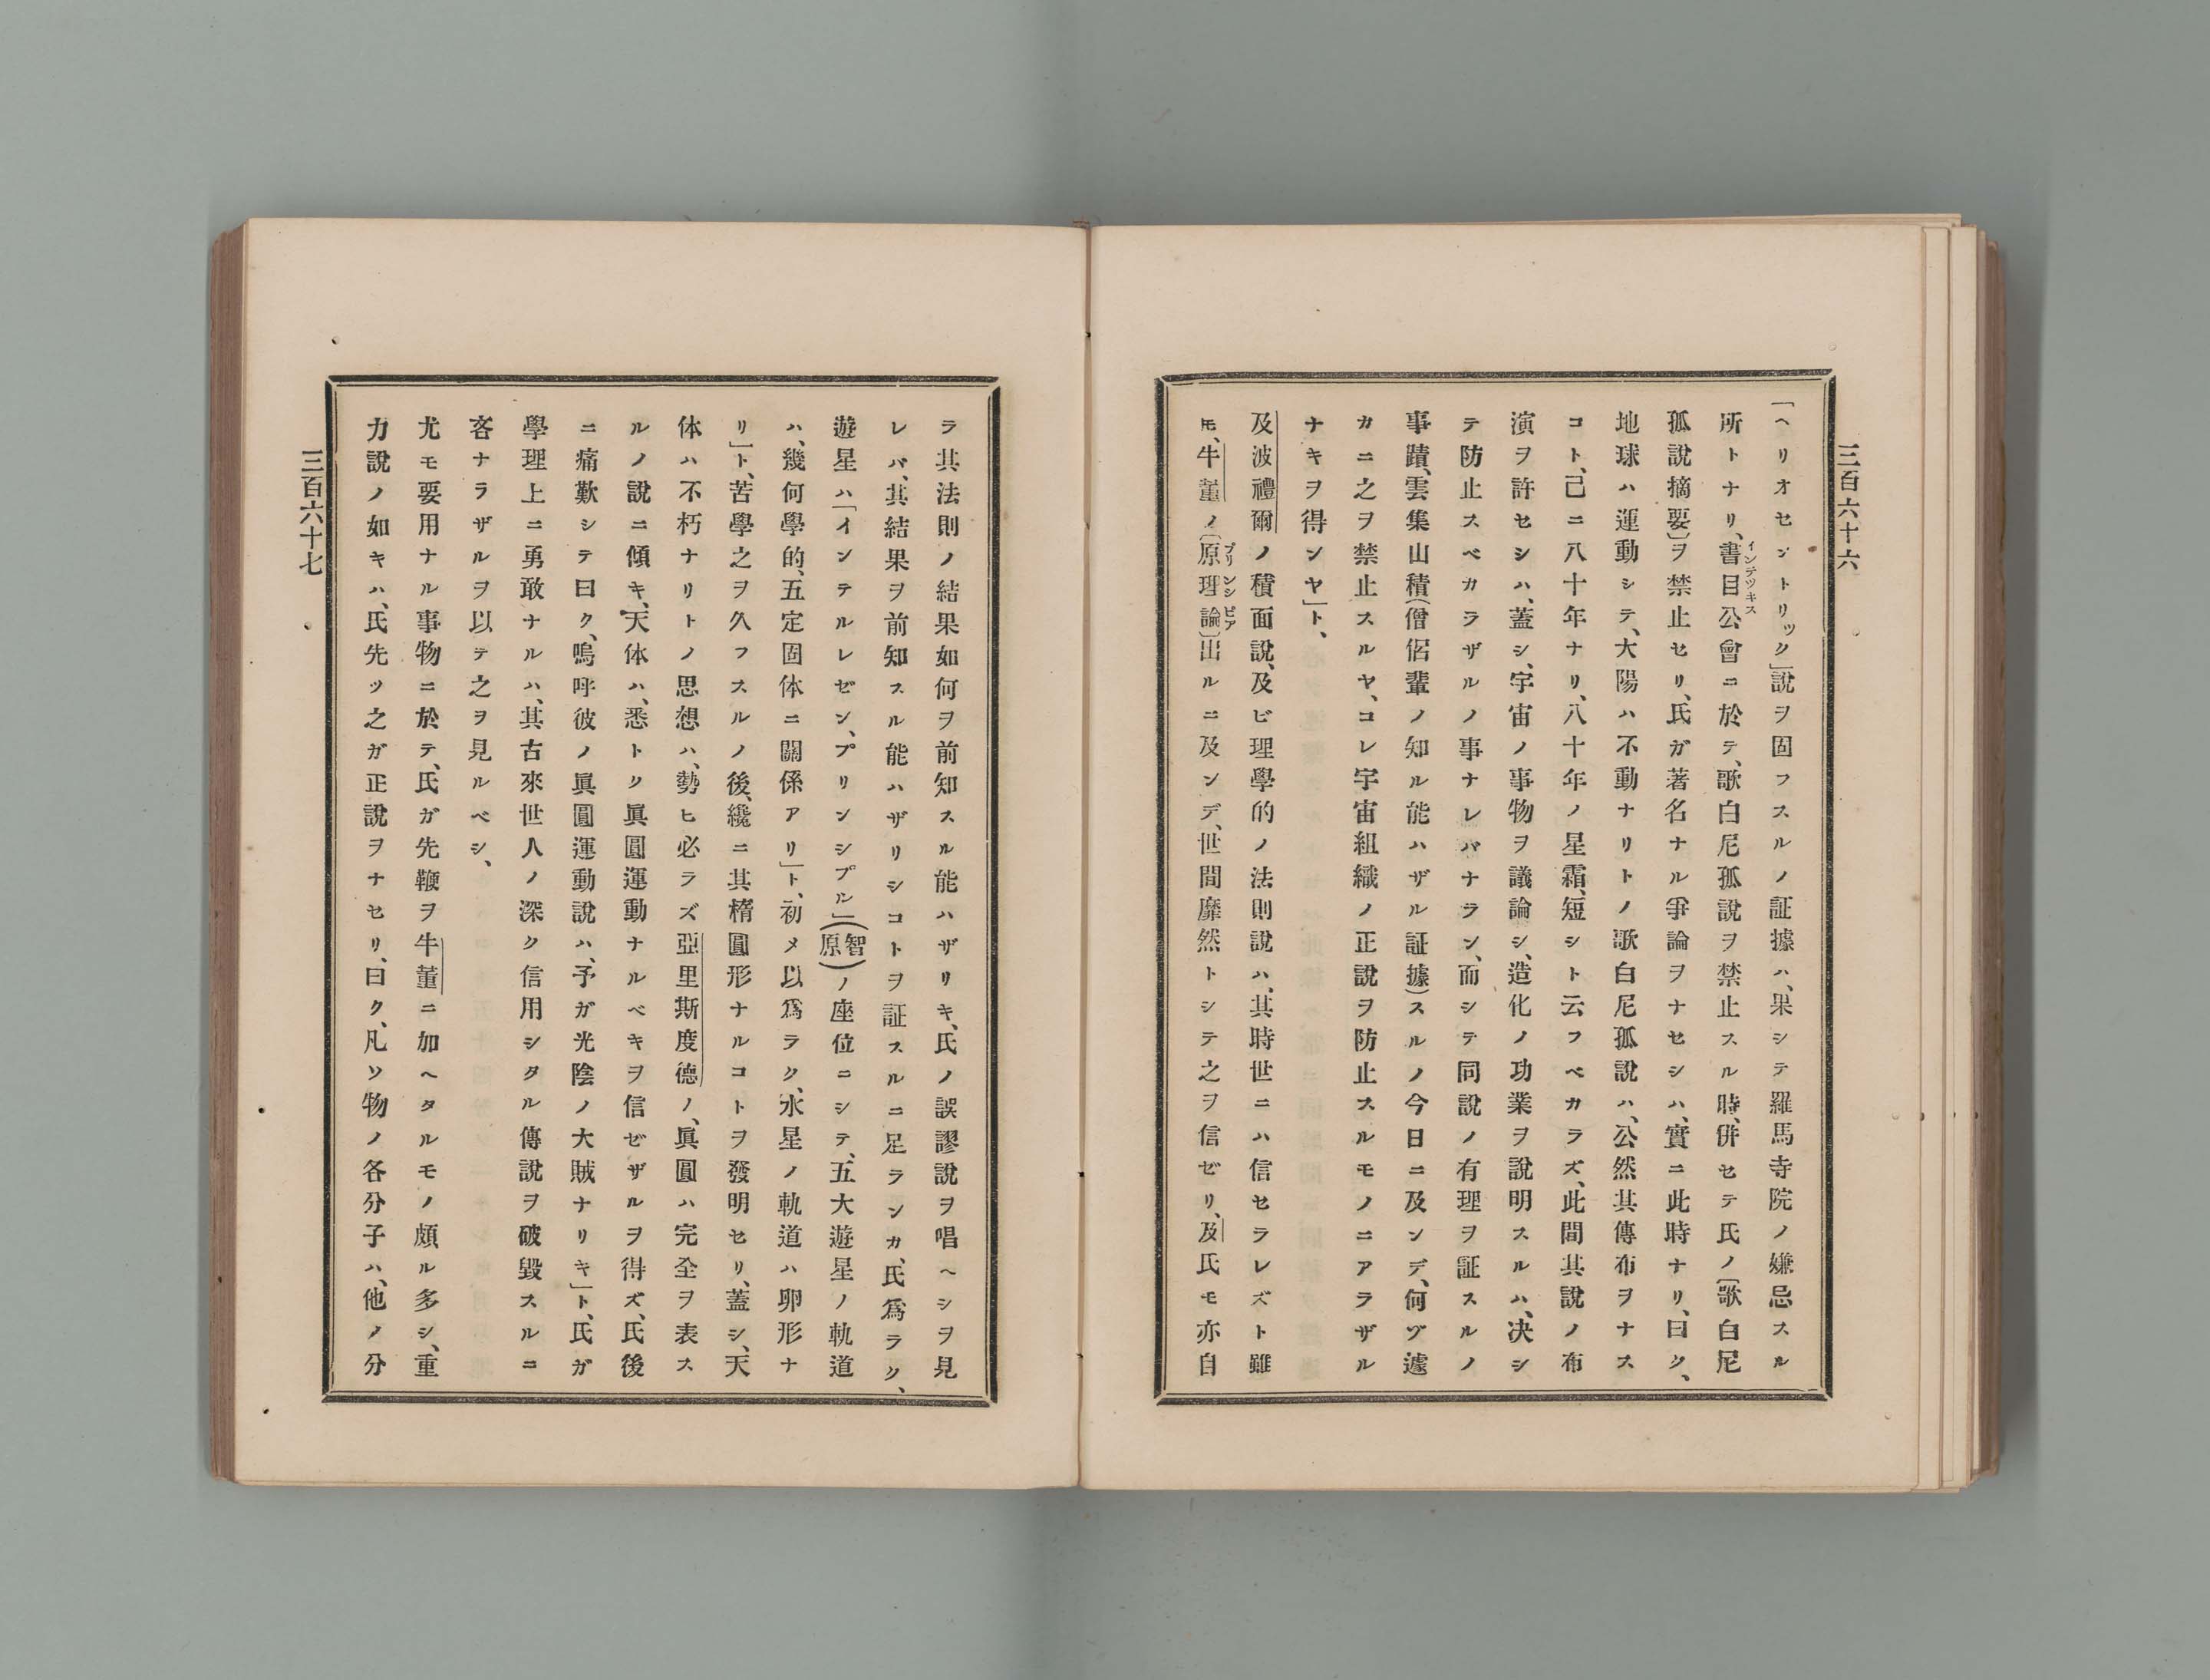 三百六十六
「ヘリオセントリック」說ヲ固フスルノ証據ハ、果シテ羅馬寺院ノ嫌忌スル
所トナリ、書目公會ニ於テ、歌白尼孤說ヲ禁止スル時、併セテ氏ノ〔歌白尼
インデツキス
孤說摘要〕ヲ禁止セリ、氏ガ著名ナル爭論ヲナセシハ、實ニ此時ナリ、曰ク、
地球ハ運動シテ、大陽ハ不動ナリトノ歌白尼孤說ハ、公然其傳布ヲナス
コト、己ニ八十年ナリ、八十年ノ星霜、短シト云フベカラズ、此間其說ノ布
演ヲ許セシハ、蓋シ、宇宙ノ事物ヲ議論シ、造化ノ功業ヲ說明スルハ、决シ
テ防止スベカラザルノ事ナレバナラン、而シテ同說ノ有理ヲ証スルノ
事蹟、雲集山積(僧侶輩ノ知ル能ハザル証據)スルノ今日ニ及ンデ、何ヅ遽
カニ之ヲ禁止スルヤ、コレ宇宙組織ノ正說ヲ防止スルモノニアラザル
ナキヲ得ンヤ」ト、
及波禮爾ノ積面說、及ビ理學的ノ法則說ハ、其時世ニハ信セラレズト雖
𪜈、牛董ノ〔原理論〕出ルニ及ンデ、世間靡然トシテ之ヲ信ゼリ、及氏モ亦自
プリンシピア
ラ其法則ノ結果如何ヲ前知スル能ハザリキ、氏ノ誤謬說ヲ唱ヘシヲ見
レバ、其結果ヲ前知スル能ハザリシコトヲ証スルニ足ランカ、氏爲ラク、
遊星ハ「インテルレゼン、プリンシプル」(智原)ノ座位ニシテ、五大遊星ノ軌道
ハ、幾何學的、五定固体ニ關係アリ」ト、初メ以爲ラク、水星ノ軌道ハ卵形ナ
リ」ト、苦學之ヲ久フスルノ後、纔ニ其橢圓形ナルコトヲ發明セリ、蓋シ、天
体ハ不朽ナリトノ思想ハ、勢ヒ必ラズ亞里斯度德ノ、眞圓ハ完全ヲ表ス
ルノ說ニ傾キ、天体ハ、悉トク眞圓運動ナルベキヲ信ゼザルヲ得ズ、氏後
ニ痛歎シテ曰ク、嗚呼彼ノ眞圓運動說ハ、予ガ光陰ノ大賊ナリキ」ト、氏ガ
學理上ニ勇敢ナルハ、其古來世人ノ深ク信用シタル傳說ヲ破毀スルニ
吝ナラザルヲ以テ之ヲ見ルベシ、
尤モ要用ナル事物ニ於テ、氏ガ先鞭ヲ牛董ニ加ヘタルモノ頗ル多シ、重
力說ノ如キハ、氏先ツ之ガ正說ヲナセリ、曰ク、凡ソ物ノ各分子ハ、他ノ分
三百六十七